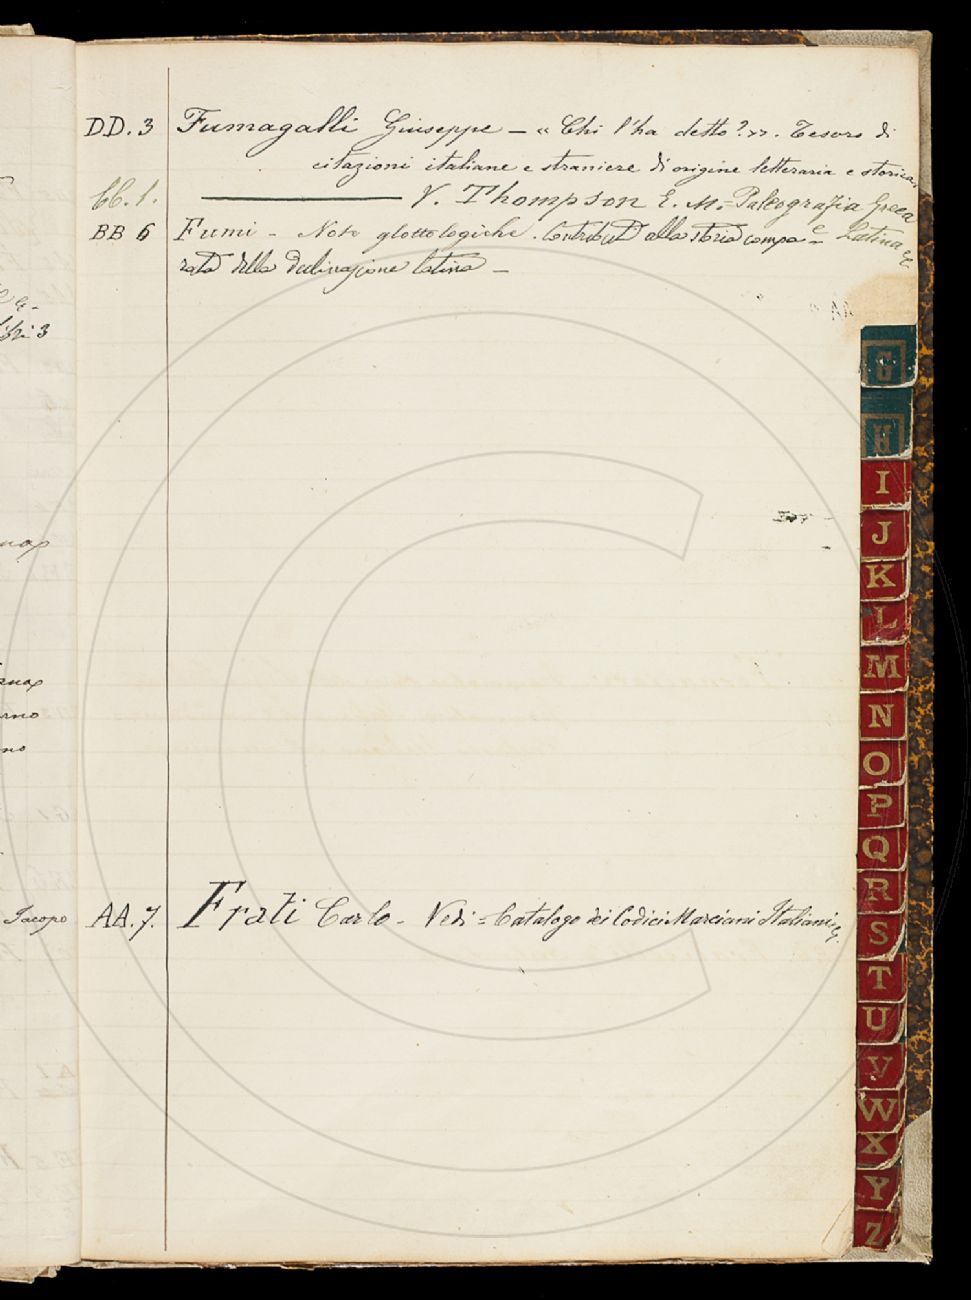 DD. 3 Fumagalli Giuseppe — « Chi l'ha detto? ». Tesoro di
citazioni italiane e straniere di origine letteraria e storica.
CC. 1. ——— V. Thompson E. M. = Paleografia Greca
e Latina
BB 6 Fumi - Note glottologiche. Contributi alla storia compa-
rata della declinazione latina —
libri 3
Jacopo
AA. 7. Frati Carlo - Vedi = Catalogo dei Codici Marciani Italiani
G
H
I
J
K
L
M
N
O
P
Q
R
S
T
U
V
W
X
Y
Z
C